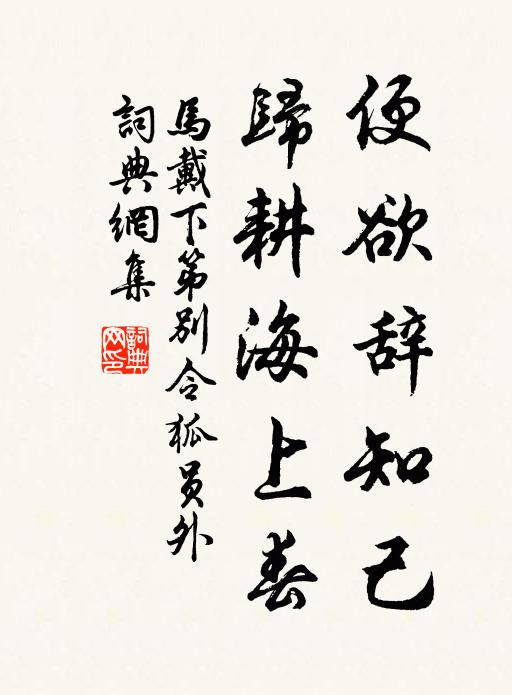 便欲辞知己
歸耕海上春
馬戴下第别令狐員外
詞典網集
詞典网印